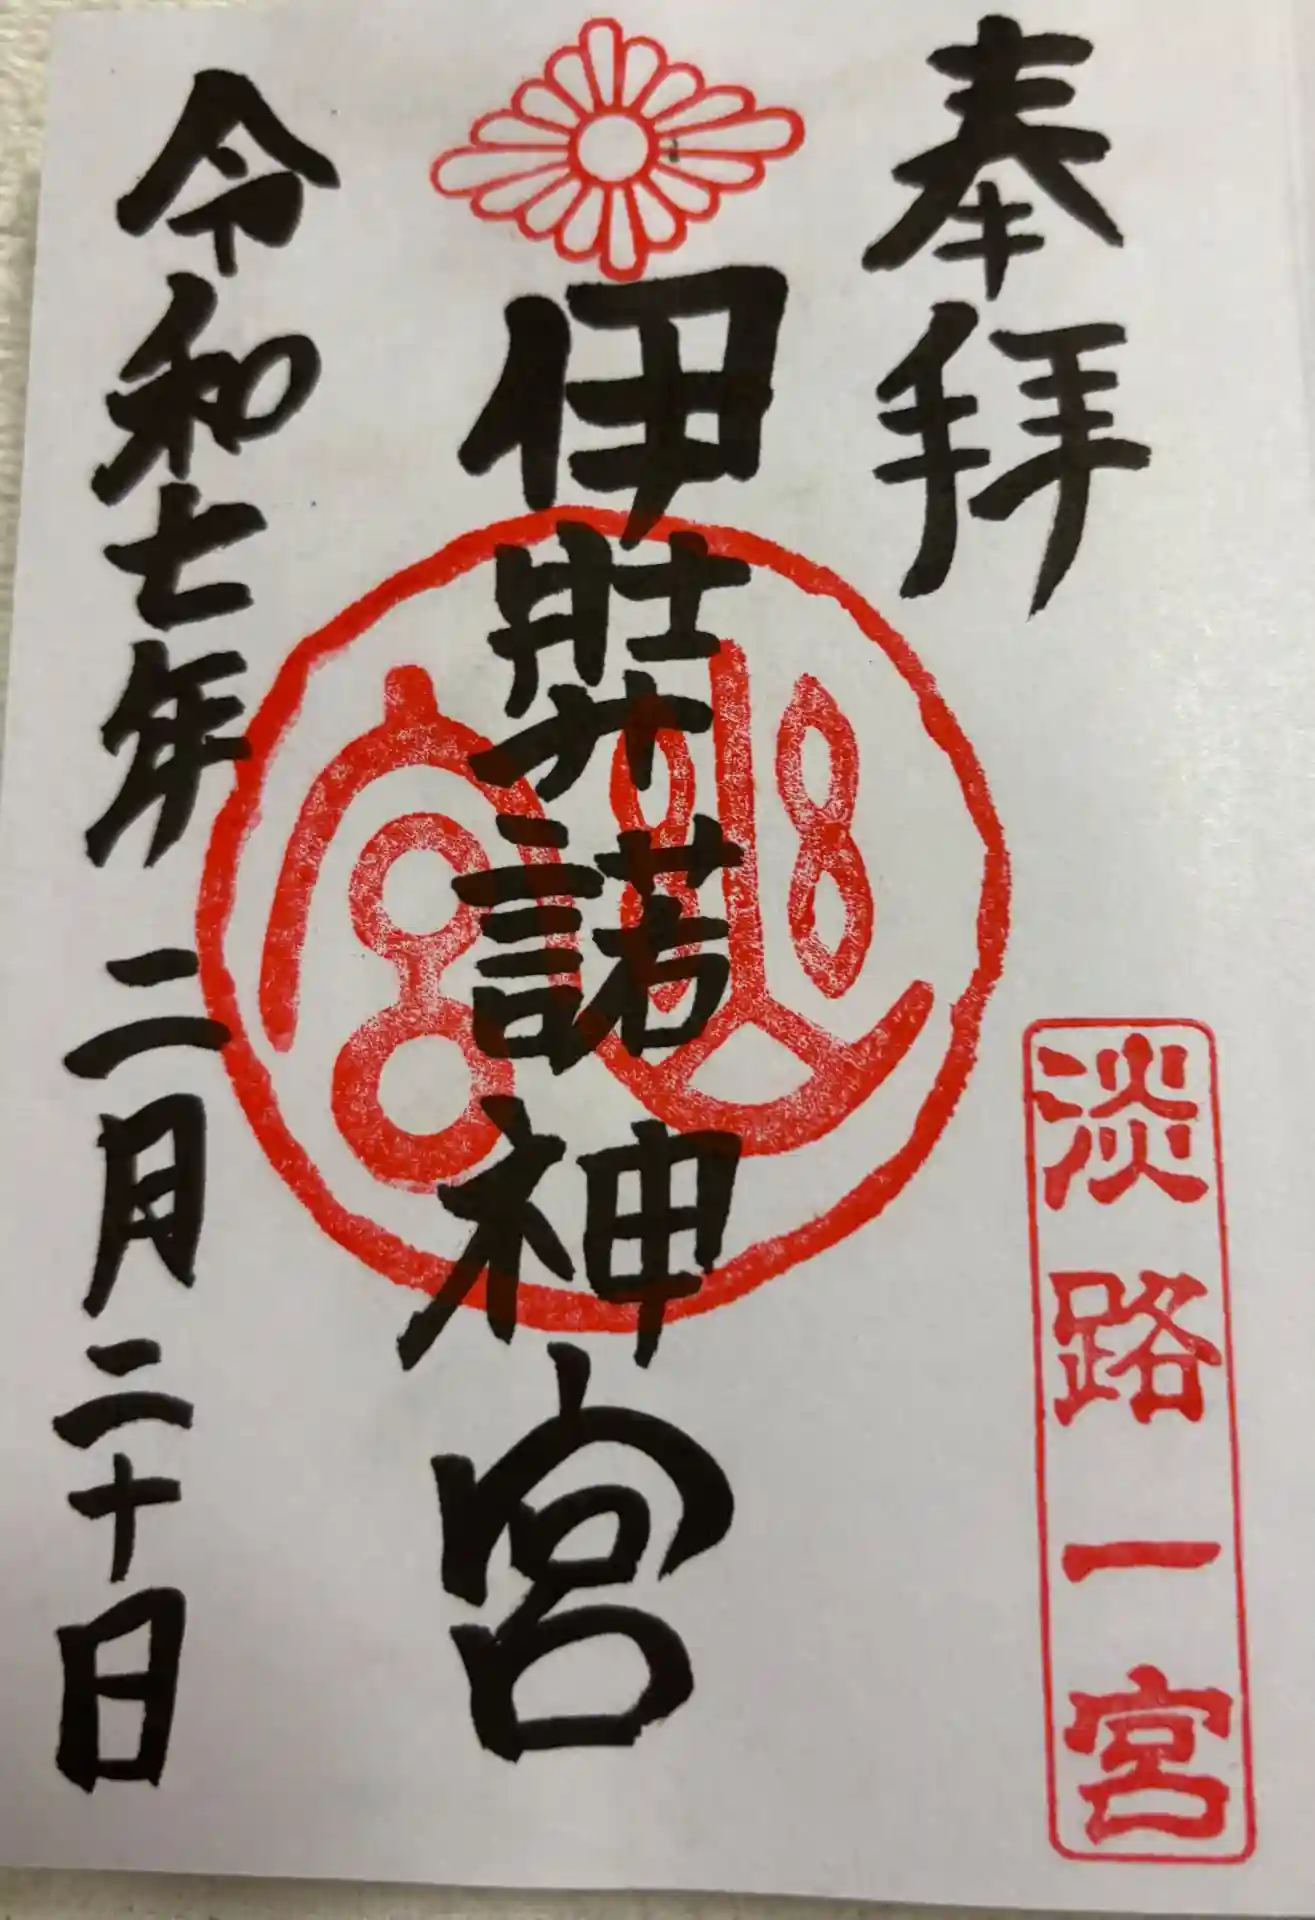 奉拝
淡路一宮
伊弉諾神宮
令和七年二月二十日